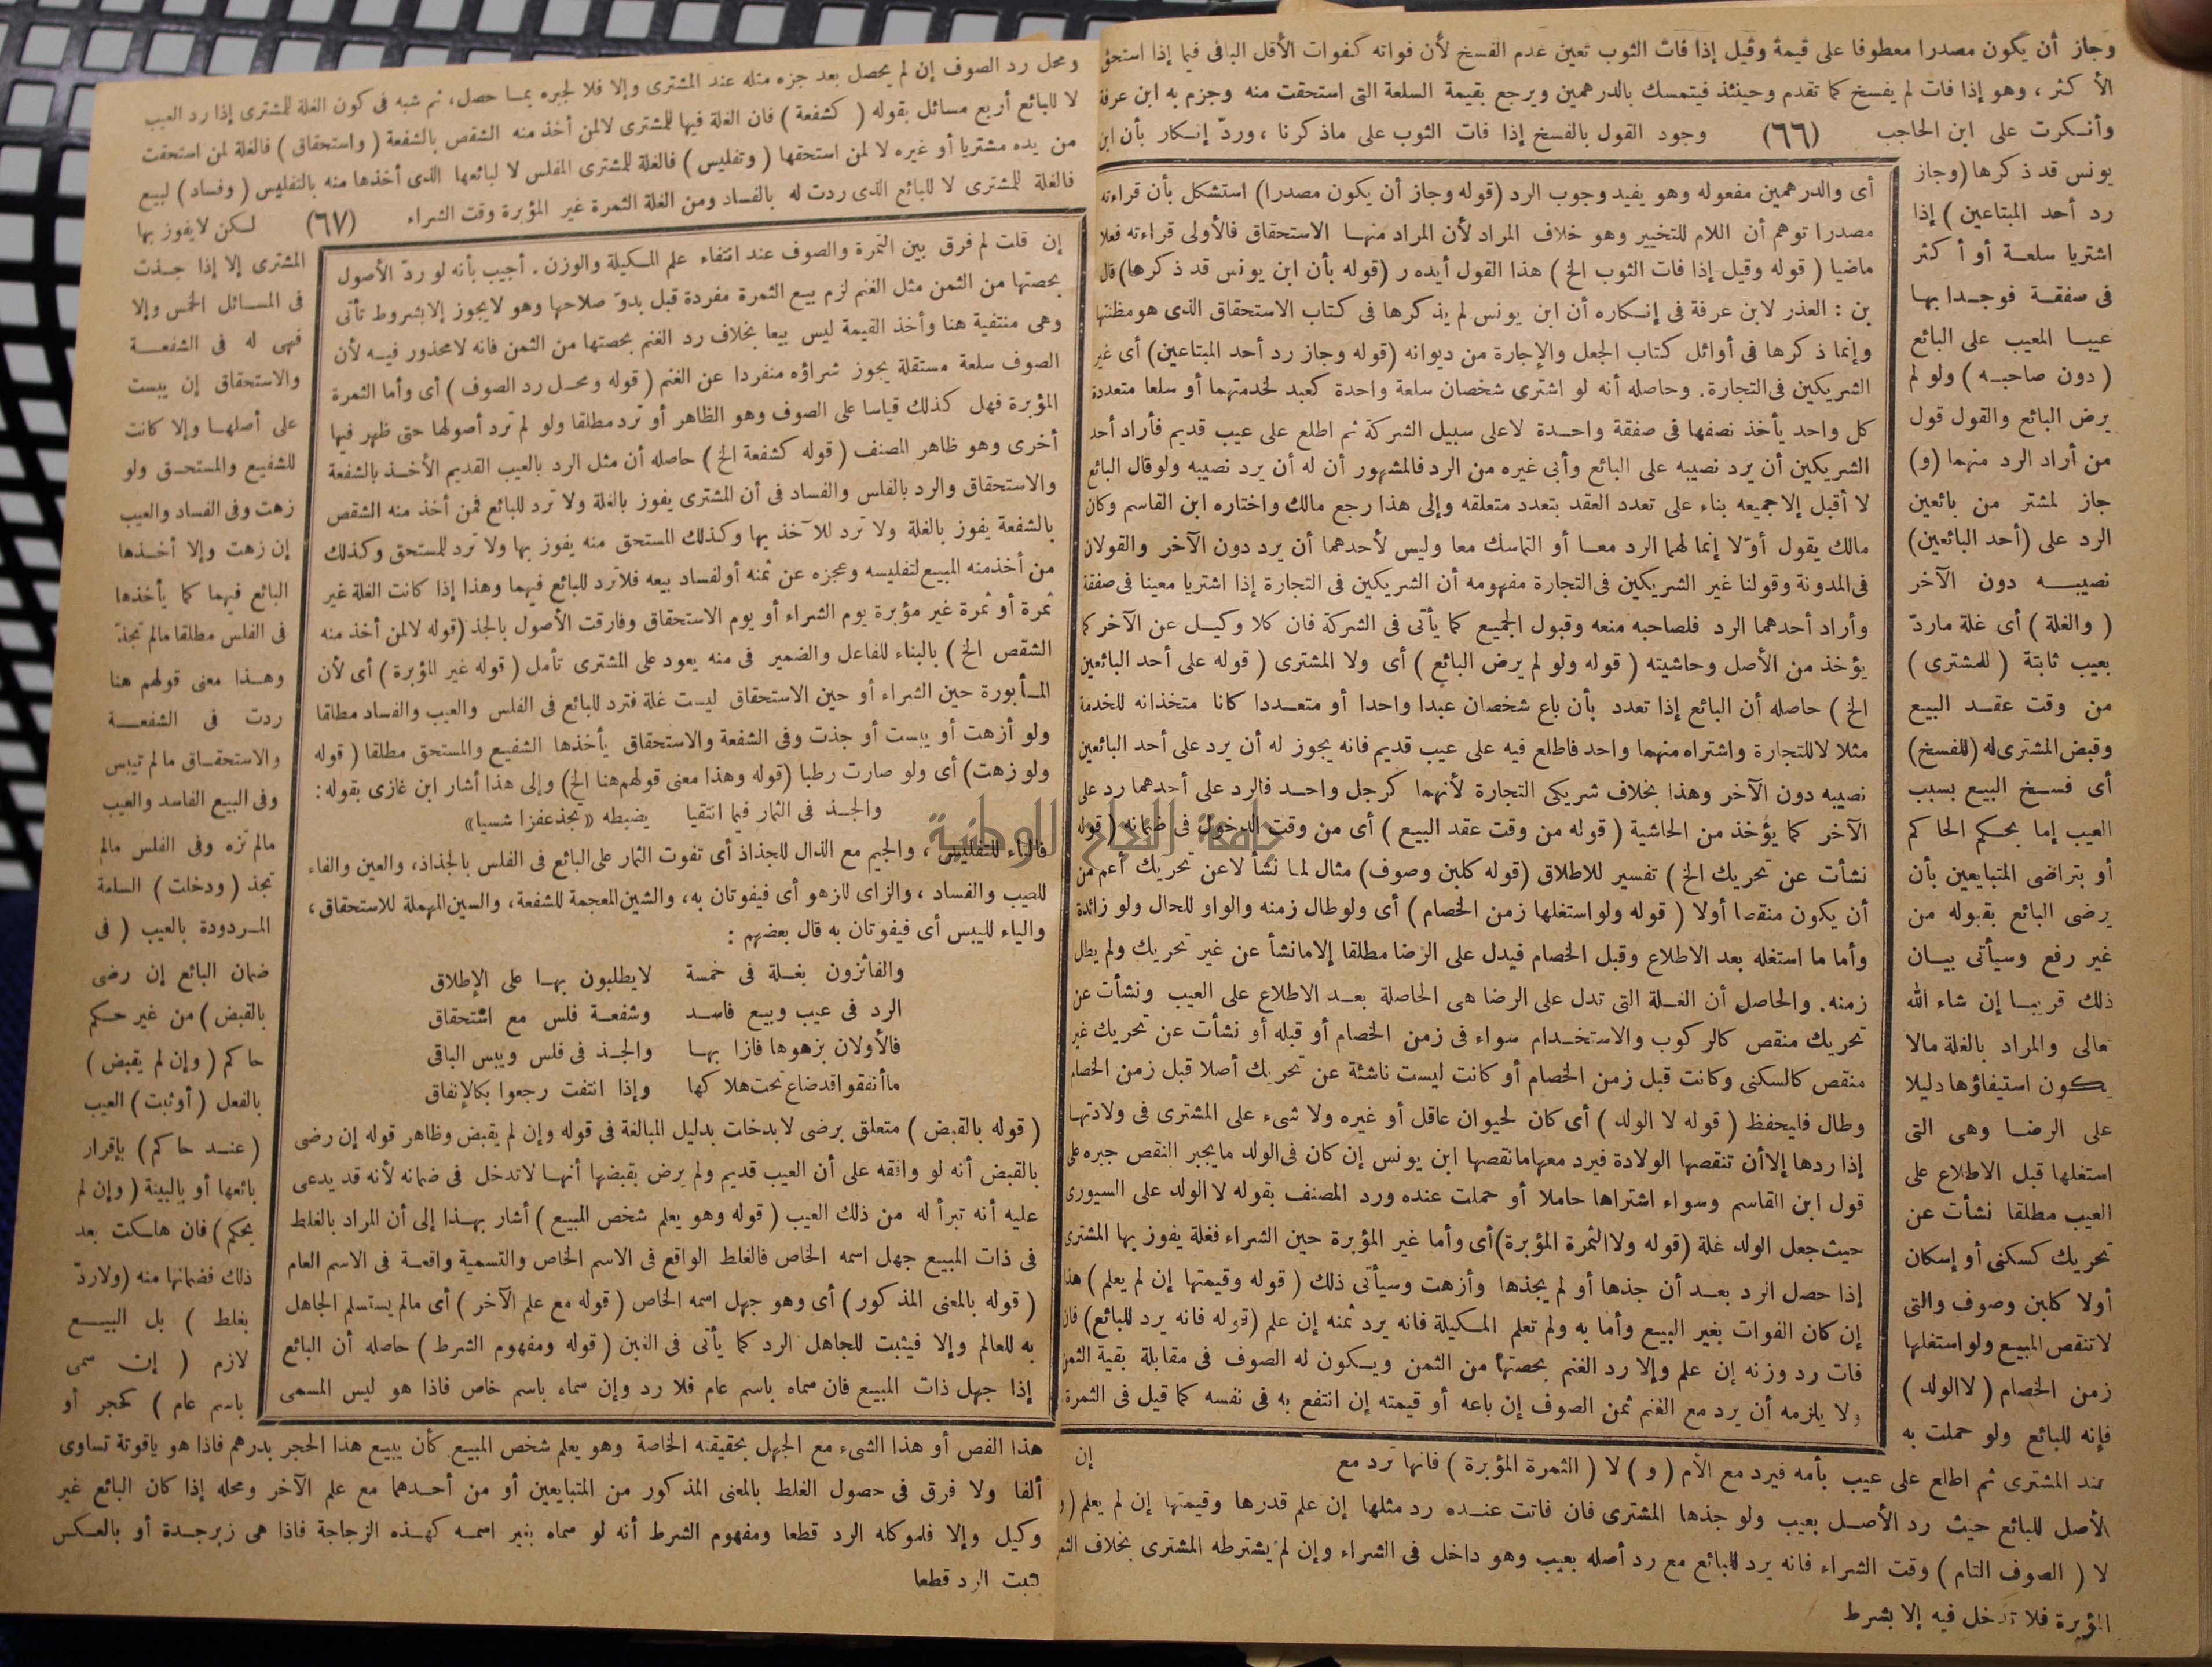 وجاز أن يكون مصدرا معطوفا على قيمة وقيل إذا فات الثوب تعين عدم الفسخ لأن فواته كفوات الأقل الباقى فيما إذا استحق
الأكثر ، وهو إذا فات لم يفسخ كما تقدم وحينئذ فيتمسك بالدرهمين ويرجع بقيمة السلعة التى استحقت منه وجزم به ابن عرفة
وأنكرت على ابن الحاجب (٦٦) وجود القول بالفسخ إذا فات الثوب على ماذكرنا ، وردّ إنكار بأن ابن
يونس قد ذكرها (وجاز
رد أحد المبتاعين) إذا
اشتريا سلعة أو أكثر
فى صفقة فوجدا بها
عيبا المعيب على البائع
(دون صاحبه) ولو لم
يرض البائع والقول قول
من أراد الرد منهما (و)
جاز لمشتر من بائعين
الرد على (أحد البائعين)
نصيبه دون الآخر
(والغلة) أى غلة ماردّ
بعيب ثابتة (للمشترى)
من وقت عقد البيع
وقبض المشترى له (للفسخ)
أى فسخ البيع بسبب
العيب إما بحكم الحاكم
أو بتراضى المتبايعين بأن
يرضى البائع بقبوله من
غير رفع وسيأتى بيان
ذلك قريبا إن شاء الله
تعالى والمراد بالغلة مالا
يكون استيفاؤها دليلا
على الرضا وهى التى
استغلها قبل الاطلاع على
العيب مطلقا نشأت عن
تحريك كسكنى أو إسكان
أولا كلبن وصوف والتى
لاتنقص المبيع ولو استغلها
زمن الخصام (لا الولد)
فإنه للبائع ولو حملت به
أى والدرهمين مفعوله وهو يفيد وجوب الرد (قوله وجاز أن يكون مصدرا) استشكل بأن قراءته
مصدرا توهم أن اللام للتخيير وهو خلاف المراد لأن المراد منها الاستحقاق فالأولى قراءته فعلا
ماضيا (قوله وقيل إذا فات الثوب الخ) هذا القول أيده ر (قوله بأن ابن يونس قد ذكرها) قال
بن : العذر لابن عرفة فى إنكاره أن ابن يونس لم يذكرها فى كتاب الاستحقاق الذى هو مظنتها
وإنما ذكرها فى أوائل كتاب الجعل والإجارة من ديوانه (قوله وجاز رد أحد المبتاعين) أى غير
الشريكين فى التجارة. وحاصله أنه لو اشترى شخصان سلعة واحدة كعبد لخدمتهما أو سلعا متعددة
كل واحد يأخذ نصفها فى صفقة واحدة لاعلى سبيل الشركة ثم اطلع على عيب قديم فأراد أحد
الشريكين أن يرد نصيبه على البائع وأبى غيره من الرد فالمشهور أن له أن يرد نصيبه ولو قال البائع
لا أقبل إلا جميعه بناء على تعدد العقد بتعدد متعلقه وإلى هذا رجع مالك واختاره ابن القاسم وكان
مالك يقول أوّلا إنما لهما الرد معا أو التماسك معا وليس لأحدهما أن يرد دون الآخر والقولان
فى المدونة وقولنا غير الشريكين فى التجارة مفهومه أن الشريكين فى التجارة إذا اشتريا معينا فى صفقة
وأراد أحدهما الرد فلصاحبه منعه وقبول الجميع كما يأتى فى الشركة فان كلا وكيل عن الآخر كما
يؤخذ من الأصل وحاشيته (قوله ولو لم يرض البائع) أى ولا المشترى (قوله على أحد البائعين
الخ) حاصله أن البائع إذا تعدد بأن باع شخصان عبدا واحدا أو متعددا كانا متخذانه للخدمة
مثلا لا للتجارة واشتراه منهما واحد فاطلع فيه على عيب قديم فانه يجوز له أن يرد على أحد البائعين
نصيبه دون الآخر وهذا بخلاف شريكى التجارة لأنهما كرجل واحد فالرد على أحدهما رد على
الآخر كما يؤخذ من الحاشية (قوله من وقت عقد البيع) أى من وقت الدخول فى ضمانه (قوله
نشأت عن تحريك الخ) تفسير للاطلاق (قوله كلبن وصوف) مثال لما نشأ لا عن تحريك أعم من
أن يكون منقصا أولا (قوله ولو استغلها زمن الخصام) أى ولو طال زمنه والواو للحال ولو زائدة
وأما ما استغله بعد الاطلاع وقبل الخصام فيدل على الرضا مطلقا إلا مانشأ عن غير تحريك ولم يطل
زمنه. والحاصل أن الغلة التى تدل على الرضا هى الحاصلة بعد الاطلاع على العيب ونشأت عن
تحريك منقص كالركوب والاستخدام سواء فى زمن الخصام أو قبله أو نشأت عن تحريك غير
منقص كالسكنى وكانت قبل زمن الخصام أو كانت ليست ناشئة عن تحريك أصلا قبل زمن الخصام
وطال فليحفظ (قوله لا الولد) أى كان لحيوان عاقل أو غيره ولا شىء على المشترى فى ولادتها
إذا ردها إلا أن تنقصها الولادة فيرد معها مانقصها ابن يونس إن كان فى الولد ما يجبر النقص جبره على
قول ابن القاسم وسواء اشتراها حاملا أو حملت عنده ورد المصنف بقوله لا الولد على السيورى
حيث جعل الولد غلة (قوله ولا الثمرة المؤبرة) أى وأما غير المؤبرة حين الشراء فغلة يفوز بها المشترى
إذا حصل الرد بعد أن جذها أو لم يجذها وأزهت وسيأتى ذلك (قوله وقيمتها إن لم يعلم) هذا
إن كان الفوات بغير البيع وأما به ولم تعلم المكيلة فانه يرد ثمنه إن علم (قوله فانه يرد للبائع) فان
فات رد وزنه إن علم وإلا رد الغنم بحصتها من الثمن ويكون له الصوف فى مقابلة بقية الثمن
ولا يلزمه أن يرد مع الغنم ثمن الصوف إن باعه أو قيمته إن انتفع به فى نفسه كما قيل فى الثمرة
إن
عند المشترى ثم اطلع على عيب بأمه فيرد مع الأم (و) لا (الثمرة المؤبرة) فانها ترد مع
الأصل للبائع حيث رد الأصل بعيب ولو جذها المشترى فان فاتت عنده رد مثلها إن علم قدرها وقيمتها إن لم يعلم (و)
لا (الصوف التام) وقت الشراء فانه يرد للبائع مع رد أصله بعيب وهو داخل فى الشراء وإن لم يشترطه المشترى بخلاف الثمر
المؤبرة فلا تدخل فيه إلا بشرط
ومحل رد الصوف إن لم يحصل بعد جزه مثله عند المشترى وإلا فلا لجبره بما حصل ، ثم شبه فى كون الغلة للمشترى إذا رد العيب
لا للبائع أربع مسائل بقوله (كشفعة) فان الغلة فيها للمشترى لا لمن أخذ منه الشقص بالشفعة (واستحقاق) فالغلة لمن استحقت
من يده مشتريا أو غيره لا لمن استحقها (وتفليس) فالغلة للمشترى المفلس لا لبائعها الذى أخذها منه بالتفليس (وفساد) لبيع
فالغلة للمشترى لا للبائع الذى ردت له بالفساد ومن الغلة الثمرة غير المؤبرة وقت الشراء (٦٧) لكن لا يفوز بها
المشترى إلا إذا جذت
فى المسائل الخمس وإلا
فهى له فى الشفعة
والاستحقاق إن يبست
على أصلها وإلا كانت
للشفيع والمستحق ولو
زهت وفى الفساد والعيب
إن زهت وإلا أخذها
البائع فيهما كما يأخذها
فى الفلس مطلقا مالم تجذ
وهذا معنى قولهم هنا
ردت فى الشفعة
والاستحقاق مالم تيبس
وفى البيع الفاسد والعيب
مالم تزه وفى الفلس مالم
تجذ (ودخلت) السلعة
المردودة بالعيب (فى
ضمان البائع إن رضى
بالقبض) من غير حكم
حاكم (وإن لم يقبض)
بالفعل (أو ثبت) العيب
(عند حاكم) بإقرار
بائعها أو بالبينة (وإن لم
يحكم) فان هلكت بعد
ذلك فضمانها منه (ولا ردّ
بغلط) بل البيع
لازم (إن سمى
باسم عام) كحجر أو
إن قلت لم فرق بين الثمرة والصوف عند انتفاء علم المكيلة والوزن . أجيب بأنه لو ردّ الأصول
بحصتها من الثمن مثل الغنم لزم بيع الثمرة مفردة قبل بدوّ صلاحها وهو لا يجوز إلا بشروط تأتى
وهى منتفية هنا وأخذ القيمة ليس بيعا بخلاف رد الغنم بحصتها من الثمن فانه لا محذور فيه لأن
الصوف سلعة مستقلة يجوز شراؤه منفردا عن الغنم (قوله ومحل رد الصوف) أى وأما الثمرة
المؤبرة فهل كذلك قياسا على الصوف وهو الظاهر أو ترد مطلقا ولو لم ترد أصولها حتى ظهر فيها
أخرى وهو ظاهر المصنف (قوله كشفعة الخ) حاصله أن مثل الرد بالعيب القديم الأخذ بالشفعة
والاستحقاق والرد بالفلس والفساد فى أن المشترى يفوز بالغلة ولا ترد للبائع فمن أخذ منه الشقص
بالشفعة يفوز بالغلة ولا ترد للآخذ بها وكذلك المستحق منه يفوز بها ولا ترد للمستحق وكذلك
من أخذ منه المبيع لتفليسه وعجزه عن ثمنه أو لفساد بيعه فلا ترد للبائع فيهما وهذا إذا كانت الغلة غير
ثمرة أو ثمرة غير مؤبرة يوم الشراء أو يوم الاستحقاق وفارقت الأصول بالجذ (قوله لا لمن أخذ منه
الشقص الخ) بالبناء للفاعل والضمير فى منه يعود على المشترى تأمل (قوله غير المؤبرة) أى لأن
المأبورة حين الشراء أو حين الاستحقاق ليست غلة فترد للبائع فى الفلس والعيب والفساد مطلقا
ولو أزهت أو يبست أو جذت وفى الشفعة والاستحقاق يأخذها الشفيع والمستحق مطلقا (قوله
ولو زهت) أى ولو صارت رطبا (قوله وهذا معنى قولهم هنا الخ) وإلى هذا أشار ابن غازى بقوله :
والجذ فى الثمار فيما انتقيا يضبطه «تجذعفزا شسيا»
فالتاء للتفليس ، والجيم مع الذال للجذاذ أى تفوت الثمار على البائع فى الفلس بالجذاذ، والعين والفاء
للعيب والفساد ، والزاى للزهو أى فيفوتان به، والشين المعجمة للشفعة، والسين المهملة للاستحقاق،
والياء لليبس أى فيفوتان به قال بعضهم :
والفائزون بغلة فى خمسة لا يطلبون بها على الإطلاق
الرد فى عيب وبيع فاسد وشفعة فلس مع استحقاق
فالأولان بزهوها فازا بها والجذ فى فلس ويبس الباقى
ما أنفقوا قد ضاع تحت هلاكها وإذا انتفت رجعوا بكالإنفاق
(قوله بالقبض) متعلق برضى لا بدخلت بدليل المبالغة فى قوله وإن لم يقبض وظاهر قوله إن رضى
بالقبض أنه لو وافقه على أن العيب قديم ولم يرض بقبضها أنها لا تدخل فى ضمانه لأنه قد يدعى
عليه أنه تبرأ له من ذلك العيب (قوله وهو يعلم شخص المبيع) أشار بهذا إلى أن المراد بالغلط
فى ذات المبيع جهل اسمه الخاص فالغلط الواقع فى الاسم الخاص والتسمية واقعة فى الاسم العام
(قوله بالمعنى المذكور) أى وهو جهل اسمه الخاص (قوله مع علم الآخر) أى مالم يستسلم الجاهل
به للعالم وإلا فيثبت للجاهل الرد كما يأتى فى الغبن (قوله ومفهوم الشرط) حاصله أن البائع
إذا جهل ذات المبيع فان سماه باسم عام فلا رد وإن سماه باسم خاص فاذا هو ليس المسمى
هذا الفص أو هذا الشىء مع الجهل بحقيقته الخاصة وهو يعلم شخص المبيع كأن يبيع هذا الحجر بدرهم فاذا هو ياقوتة تساوى
ألفا ولا فرق فى حصول الغلط بالمعنى المذكور من المتبايعين أو من أحدهما مع علم الآخر ومحله إذا كان البائع غير
وكيل وإلا فلموكله الرد قطعا ومفهوم الشرط أنه لو سماه بغير اسمه كهذه الزجاجة فاذا هى زبرجدة أو بالعكس
ثبت الرد قطعا
جامعة النجاح الوطنية